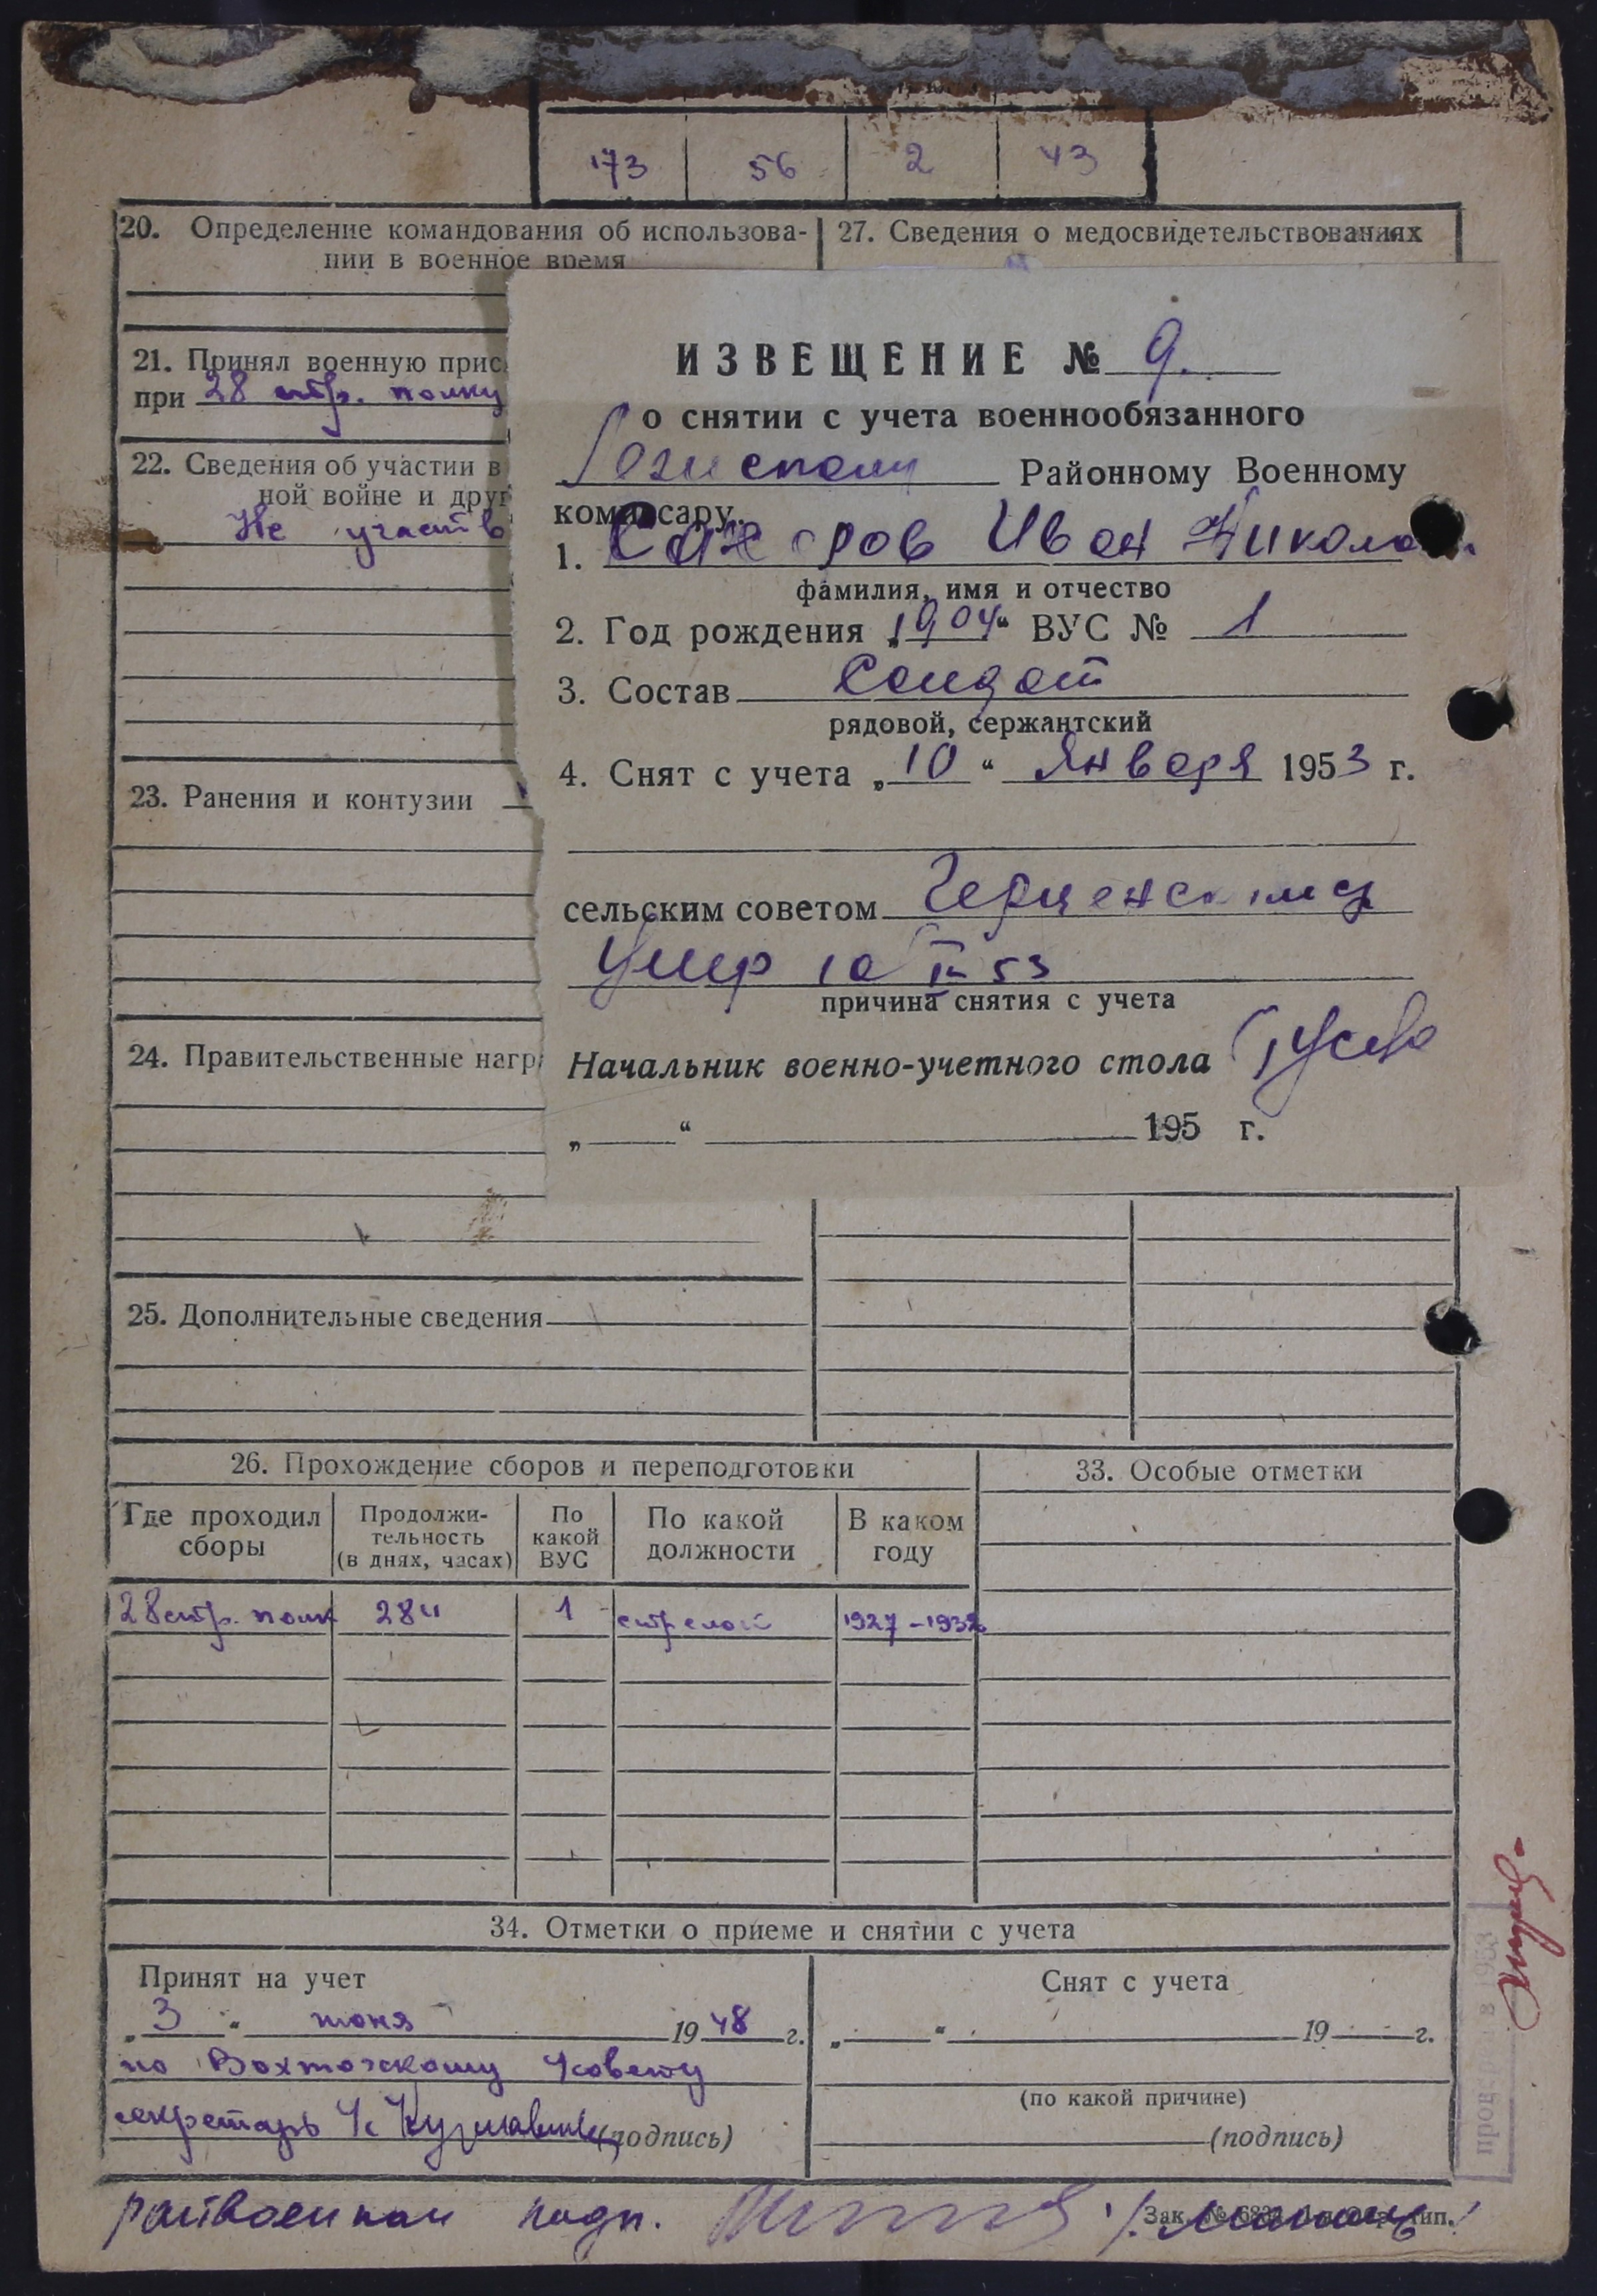 173 56 2 43
20. Определение командования об использова-
нии в военное время
27. Сведения о медосвидетельствованиях
21. Принял военную прис
при 28 стр. полку
22. Сведения об участии в
ной войне и друг
Не участв
23. Ранения и контузии
24. Правительственные нагр
ИЗВЕЩЕНИЕ № 9.
о снятии с учета военнообязанного
Районному Военному
комиссару.
1. Сахаров Иван Никола
фамилия, имя и отчество
2. Год рождения „1904“ ВУС № 1
3. Состав Солдат
рядовой, сержантский
4. Снят с учета „10“ Января 1953 г.
сельским советом
Умер 10 I 53
причина снятия с учета
Начальник военно-учетного стола
„ “ 195 г.
25. Дополнительные сведения
26. Прохождение сборов и переподготовки
33. Особые отметки
Где проходил сборы
Продолжи-
тельность
(в днях, часах)
По
какой
ВУС
По какой
должности
В каком
году
28 стр. полк 284 1 стрелок 1927-1932
34. Отметки о приеме и снятии с учета
Принят на учет
„3“ июня 1948 г.
по Вохтожскому с/совету
секретарь (подпись)
Снят с учета
„ “ 19 г.
(по какой причине)
(подпись)
райвоенком подп.
Зак. №